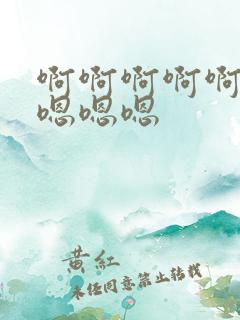 啊啊啊啊啊
嗯嗯嗯
黄红
未经同意禁止转载